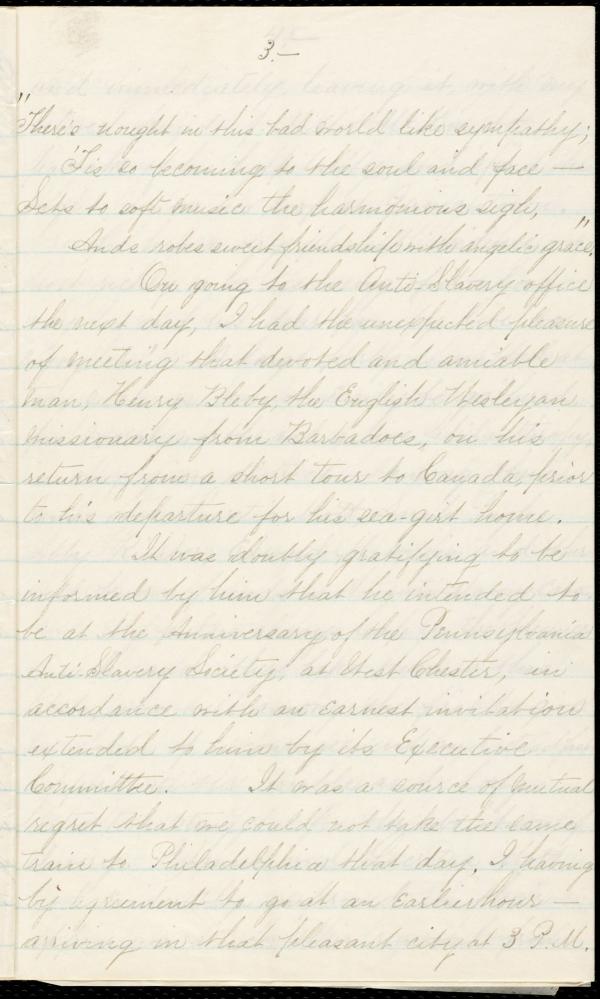 3.—
"There's nought in this bad world like sympathy;
'Tis so becoming to the soul and face —
Sets to soft music the harmonious sigh,
And robes sweet friendship with angelic grace."
On going to the Anti-Slavery office
the next day, I had the unexpected pleasure
of meeting that devoted and amiable
man, Henry Bleby, the English Wesleyan
missionary from Barbadoes, on his
return from a short tour to Canada, prior
to his departure for his sea-girt home.
It was doubly gratifying to be
informed by him that he intended to
be at the Anniversary of the Pennsylvania
Anti-Slavery Society, at West Chester, in
accordance with an earnest invitation
extended to him by its Executive
Committee. It was a source of mutual
regret that we could not take the same
train to Philadelphia that day, I having
by agreement to go at an earlier hour —
arriving in that pleasant city at 3 P.M.